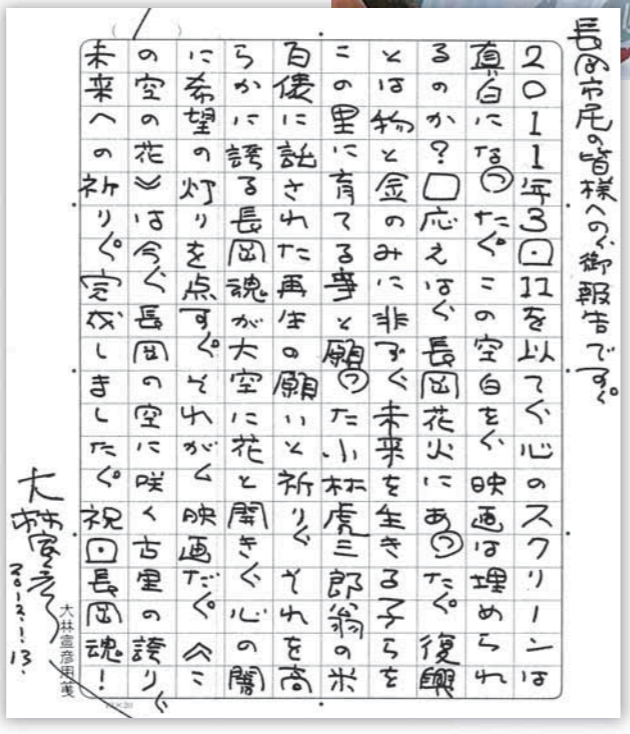 長岡市民の皆様への、御報告です。
2011年3・11を以て、心のスクリーンは
真白になった。この空白を、映画は埋められ
るのか?　応えは、長岡花火にあった。復興
とは物と金のみに非ず、未来を生きる子らを
この里に育てる事と願った小林虎三郎翁の米
百俵に託された再生の願いと祈り、それを高
らかに誇る長岡魂が大空に花と開き、心の闇
に希望の灯りを点す。それが、映画だ。《こ
の空の花》は今、長岡の空に咲く古里の誇り、
未来への祈り。完成しました。祝・長岡魂!
大林宣彦
2012.1.13.
大林宣彦用箋